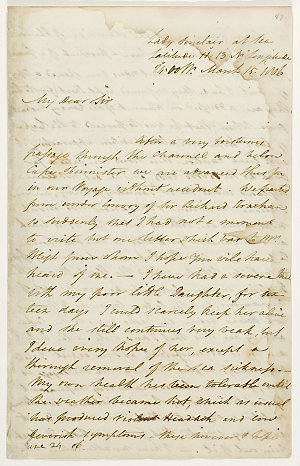 Lady Sinclair at Sea
Latitude 44. 13 N. Longitude
March 15. 1806
My dear Sir
After a very boisterous
passage through the Channel and below
Cape Finisterre we are advanced thus far
in our Voyage without accident. We parted
from under Convoy of Sir Richard Strachan
so suddenly that I had not a moment
to write but one letter which was to Mrs
from whom I hope you will have
heard of me. — I have had a severe time
with my poor little Daughter for
teen days I could scarcely keep her alive
and she still continues very weak but
I have every hope of her, except a
thorough removal of the Sea sickness.
My own health has been tolerable until
the weather became hot, which as usual
has produced violent Headach and low
feverish symptoms. these however I hope